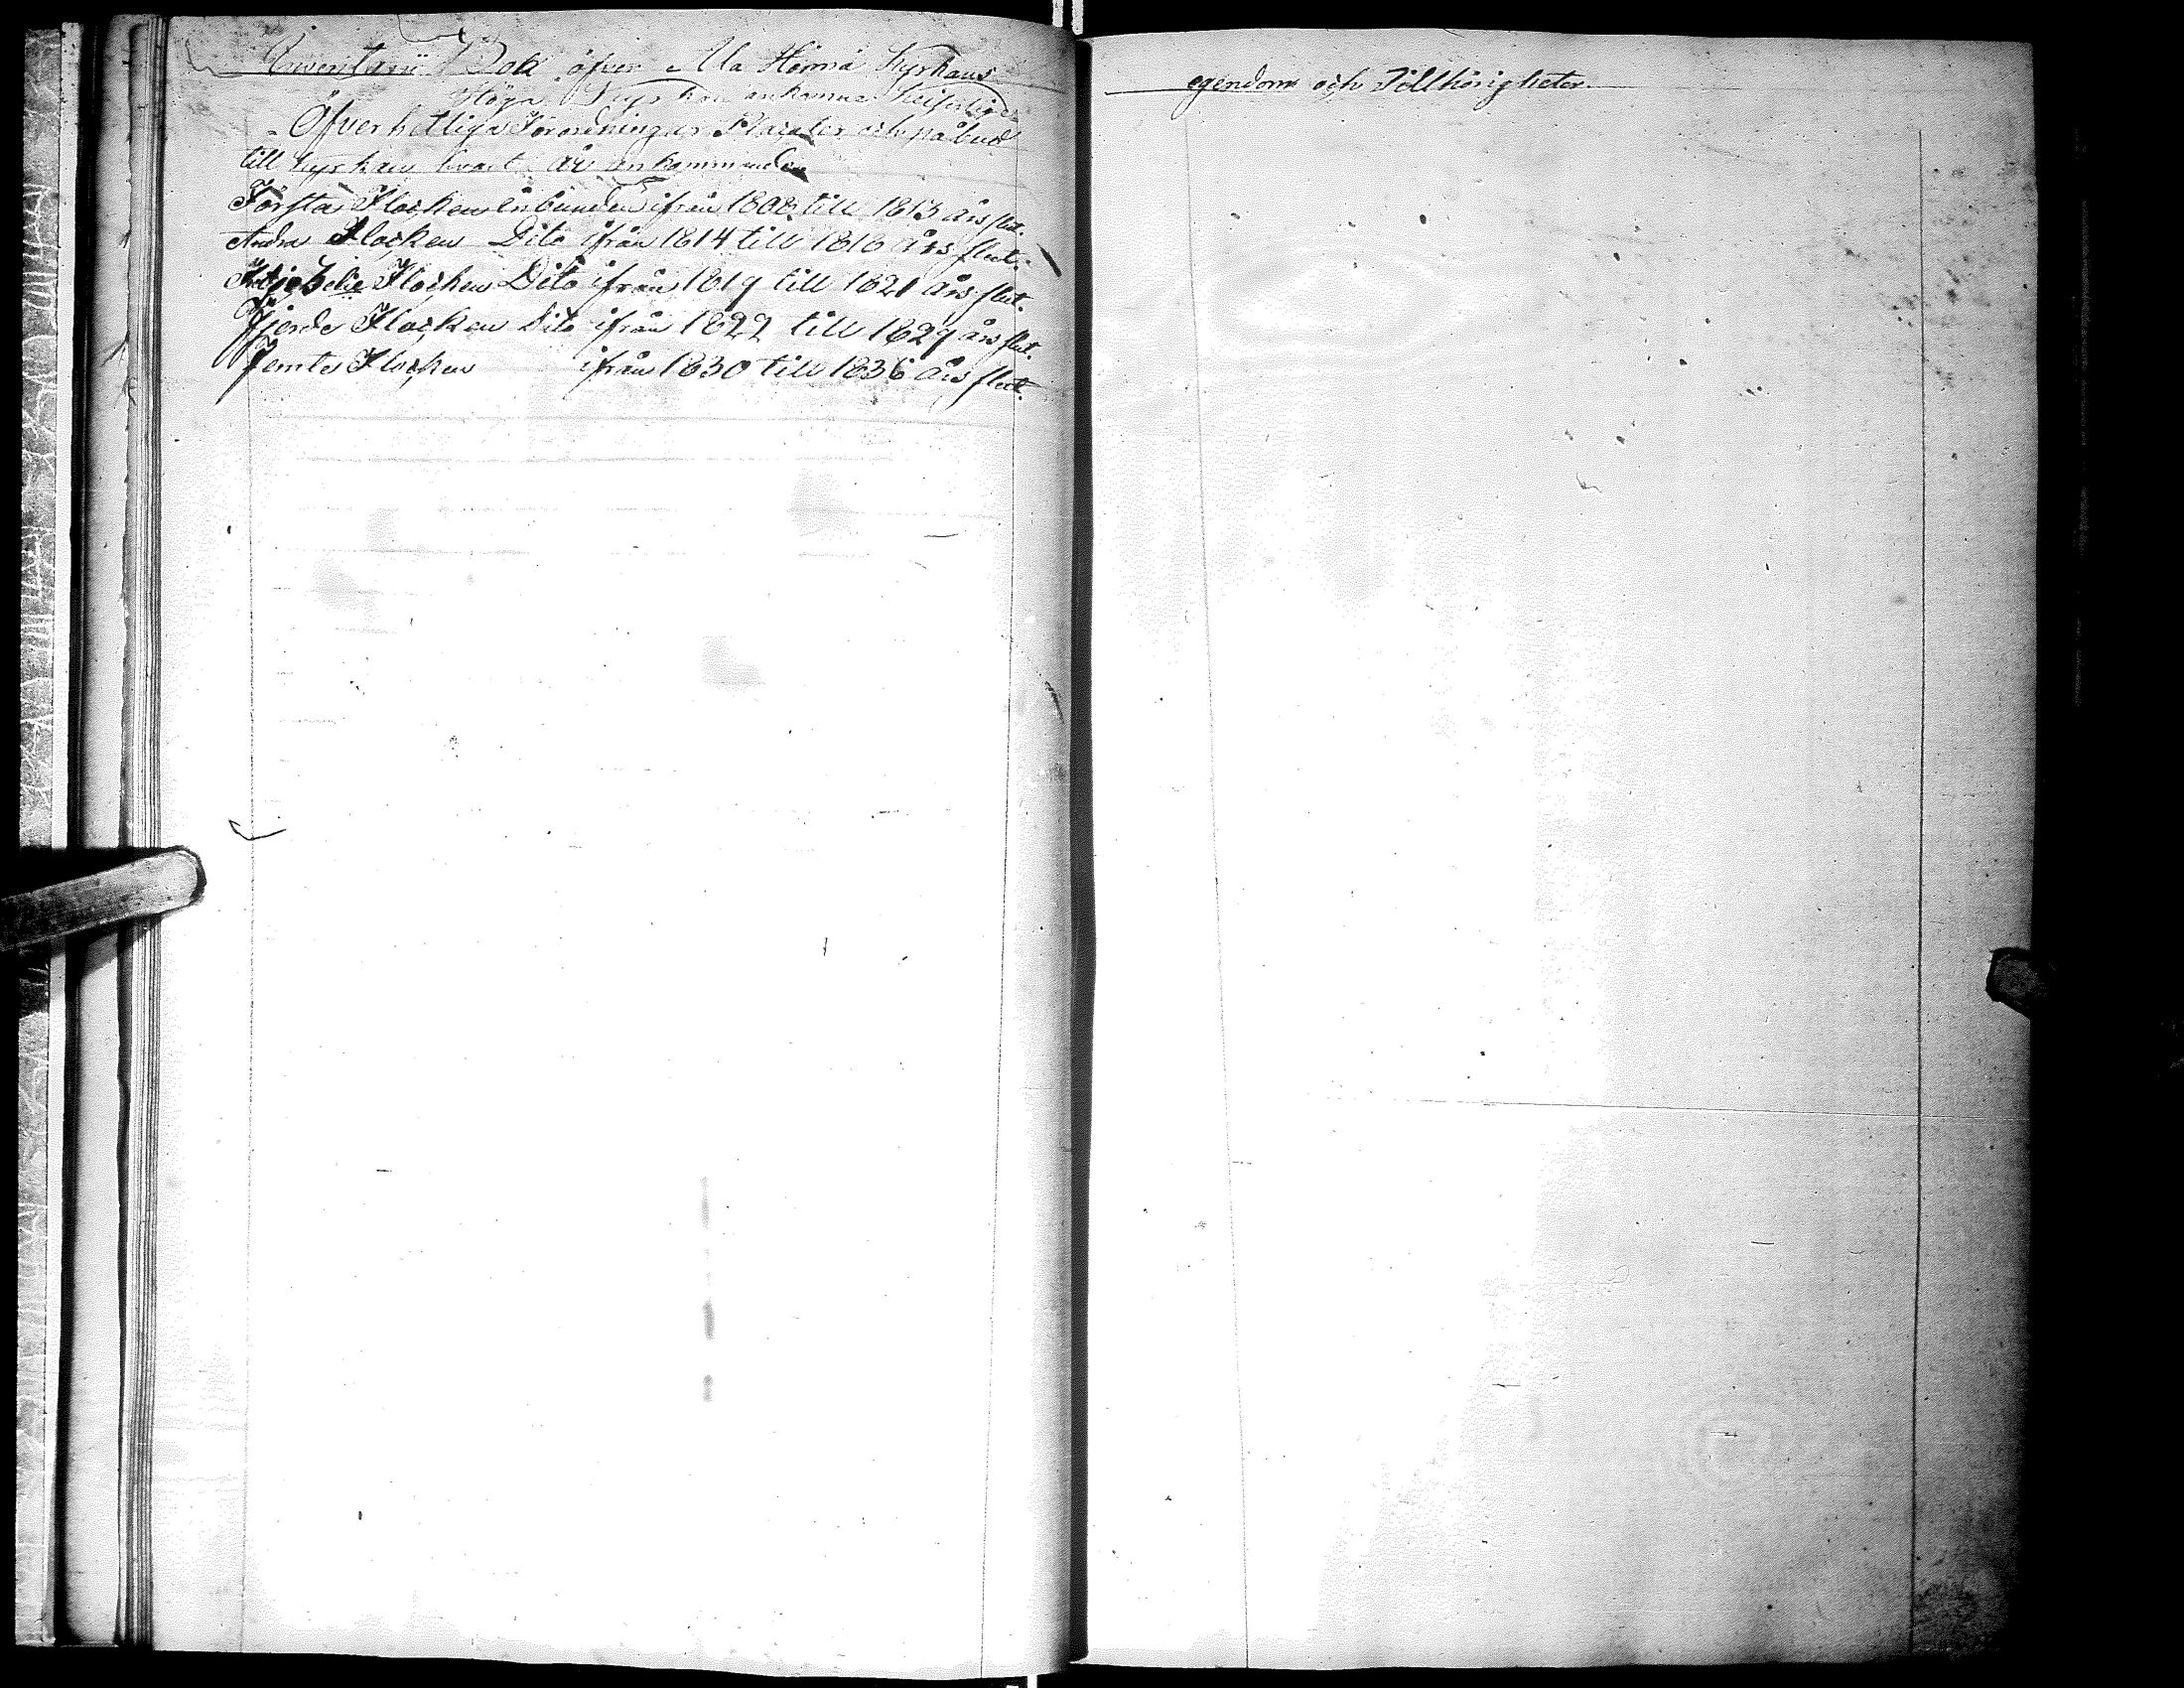 Inventarii Bok öfver Ala Hörnä Kyrkans
Höga Kyrkan ankomna Keiserliga
Öfverhetliga Förordningar Placater och påbud
till kyrkan hvart år ankommande
Första Flocken inbunden ifrån 1808 till 1813 års slut.
Andra Flocken Dito ifrån 1814 till 1818 års slut.
Tridje Flocken Dito ifrån 1819 till 1821 års slut.
Fjerde Flocken Dito ifrån 1822 till 1829 års slut.
Femte Flocken ifrån 1830 till 1836 års slut.
egendom och Tillhörigheter